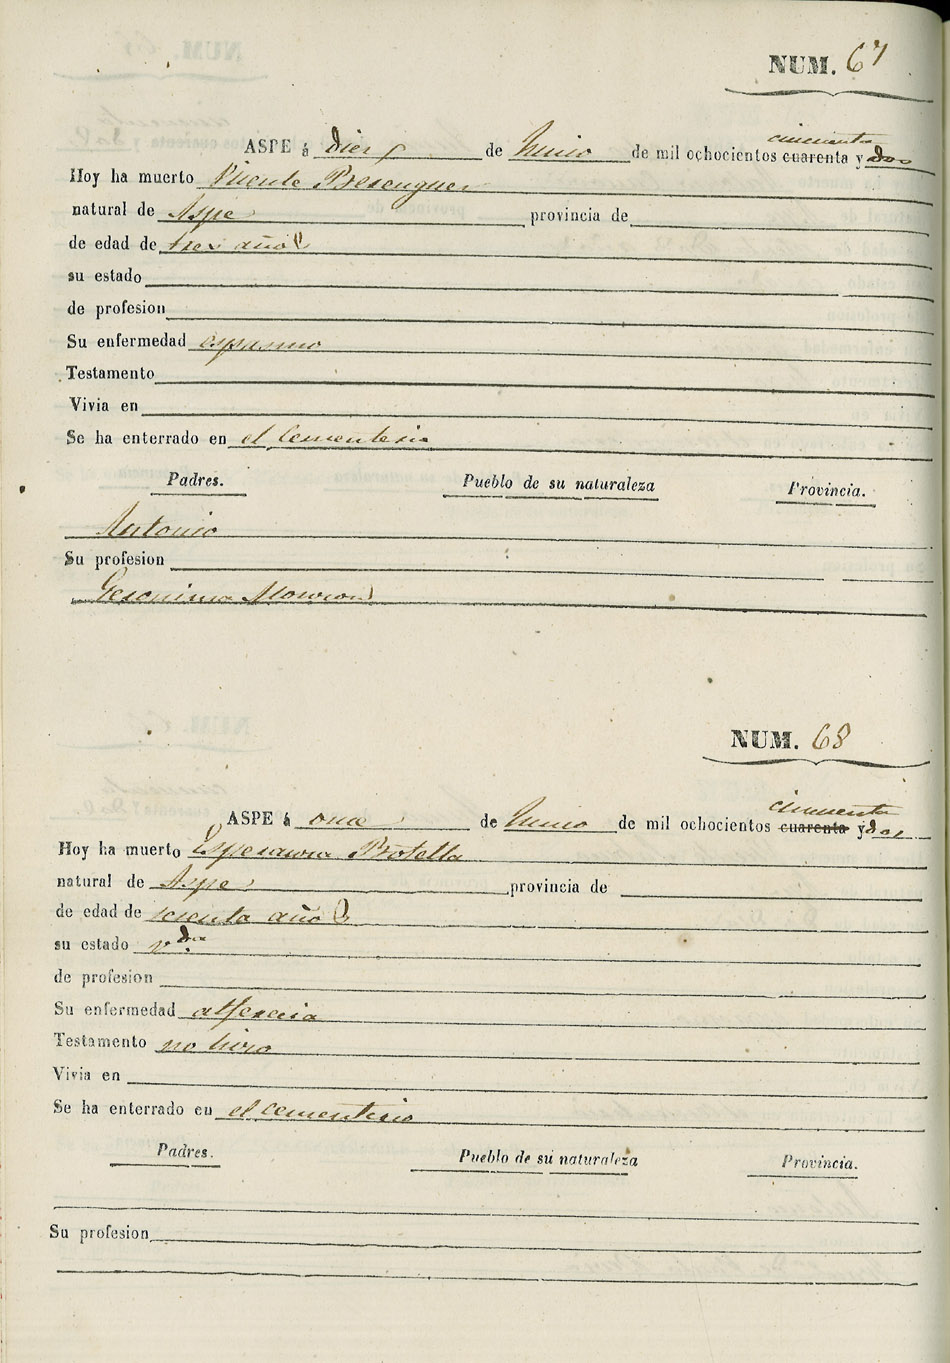 NUM. 67
cincuenta
ASPE á diez de Junio de mil ochocientos cuarenta y dos
Hoy ha muerto Vicente Berenguer
natural de Aspe provincia de
de edad de tres años
su estado
de profesion
Su enfermedad espasmo
Testamento
Vivia en
Se ha enterrado en el Cementerio
Padres. Pueblo de su naturaleza Provincia.
Antonio
Su profesion
Geronima
NUM. 68
cincuenta
ASPE á once de Junio de mil ochocientos cuarenta y dos
Hoy ha muerto Esperanza Botella
natural de Aspe provincia de
de edad de años
su estado v.da
de profesion
Su enfermedad alferecia
Testamento no hizo
Vivia en
Se ha enterrado en el cementerio
Padres. Pueblo de su naturaleza Provincia.
Su profesion